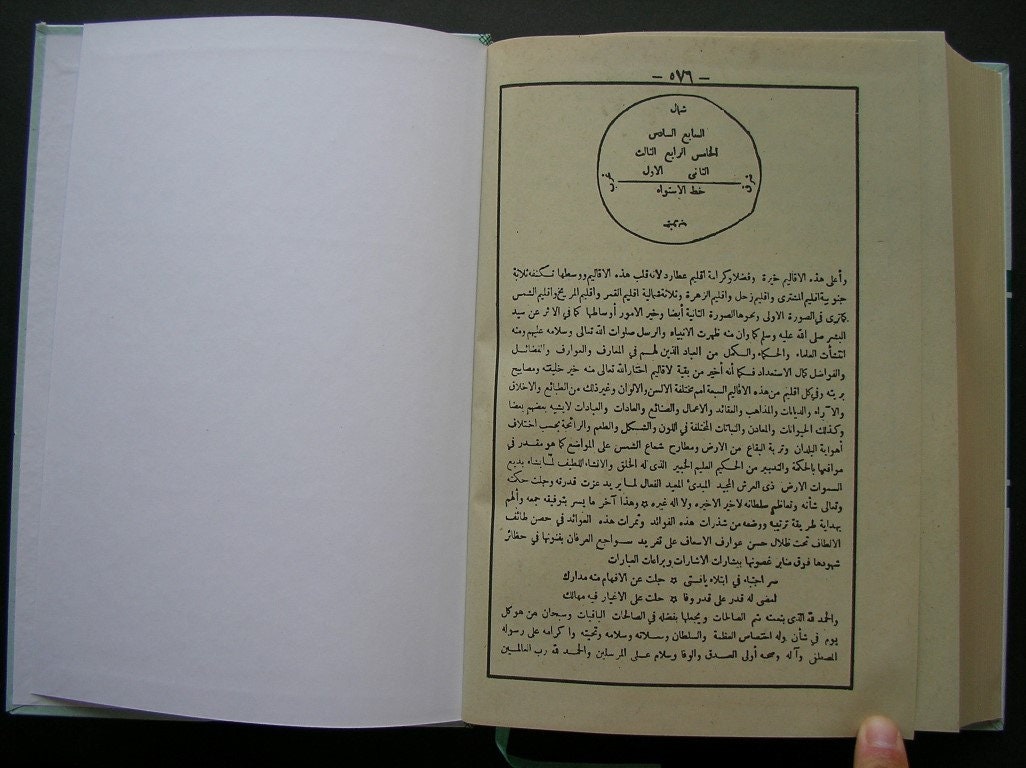 — ٥٧٦ —
شمال
السابع السادس
الخامس الرابع الثالث
الثانى الاول
شرق
غرب
خط الاستواء
جنوب
وأعلى هذه الاقاليم خيرة وفضلا وكرامة اقليم عطارد لانه قلب هذه الاقاليم ووسطها تكنفه ثلاثة
جنوبية اقليم المشترى واقليم زحل واقليم الزهرة وثلاثة شمالية اقليم القمر واقليم المريخ واقليم الشمس
كما ترى فى الصورة الاولى ونحوها الصورة الثانية أيضا وخير الامور أوساطها كما فى الاثر عن سيد
البشر صلى الله عليه وسلم كما وان منه ظهرت الانبياء والرسل صلوات الله تعالى وسلامه عليهم ومنه
انتشأت العلماء والحكماء والكمل من العباد الذين لهم فى المعارف والعوارف والفضائل
والفواضل كمال الاستعداد فكما أنه أخير من بقية الاقاليم اختار الله تعالى منه خير خليقته ومصابيح
بريته وفى كل اقليم من هذه الاقاليم السبعة امم مختلفة الالسن والالوان وغير ذلك من الطبائع والاخلاق
والآراء والديانات والمذاهب والعقائد والاعمال والصنائع والعادات والعبادات لا يشبه بعضهم بعضا
وكذلك الحيوانات والمعادن والنباتات المختلفة فى اللون والشكل والطعم والرائحة بحسب اختلاف
أهوية البلدان وتربة البقاع من الارض ومطارح شعاع الشمس على المواضع كما هو مقدر فى
مواقعها بالحكمة والتدبير من الحكيم العليم الخبير الذى له الخلق والانشاء اللطيف لما يشاء بديع
السموات الارض ذى العرش المجيد المبدئ المعيد الفعال لما يريد عزت قدرته وجلت حكمته
وتعالى شأنه وتعاظم سلطانه لا خير الا خيره ولا اله غيره * وهذا آخر ما يسر بتوفيقه جمعه وألهم
بهداية طريقة ترتيبه ووضعه من شذرات هذه الفوائد وثمرات هذه العوائد فى حصن طائف
الالطاف تحت ظلال حسن عوارف الاسعاف على تغريد سواجع العرفان بفنونها فى حظائر
شهودها فوق منابر غصونها ببشارات الاشارات وبراعات العبارات
سر اجتباه فى ابتلاء يافتى * جلت عن الافهام منه مدارك
أمضى له قدر على قدر وفا * حلت على الاغيار فيه مهالك
والحمد لله الذى بنعمته تتم الصالحات ويجعلها بفضله فى الصالحات الباقيات وسبحان من هو كل
يوم فى شأن وله اختصاص العظمة والسلطان وصلاته وسلامه وتحيته واكرامه على رسوله
المصطفى وآله وصحبه أولى الصدق والوفا وسلام على المرسلين والحمد لله رب العالمين